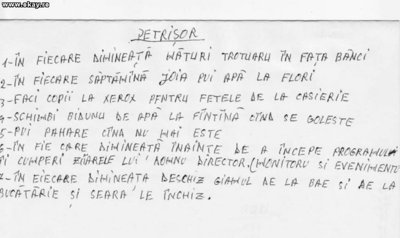 www.okay.ro
PETRIȘOR
1-ÎN FIECARE DIMINEAȚĂ MĂTURI TROTUARU ÎN FAȚA BĂNCI
2-ÎN FIECARE SĂPTĂMÎNĂ JOIA PUI APĂ LA FLORI
3-FACI COPII LA XEROX PENTRU FETELE DE LA CASIERIE
4-SCHIMBI BIDUNU DE APĂ LA FÎNTÎNĂ CÎND SE GOLEȘTE
5-PUI PAHARE CÎND NU MAI ESTE
6-ÎN FIE CARE DIMINEAȚĂ ÎNAINTE DE A ÎNCEPE PROGRAMULU
ȚI CUMPERI ZIARELE LUI DOMNU DIRECTOR. (MONITORU SI EVENIMENTU
7-ÎN FIECARE DIMINEAȚA DESCHIZ GIAMUL DE LA BAE SI DE LA
BUCĂTĂRIE ȘI SEARA LE ÎNCHIZ.